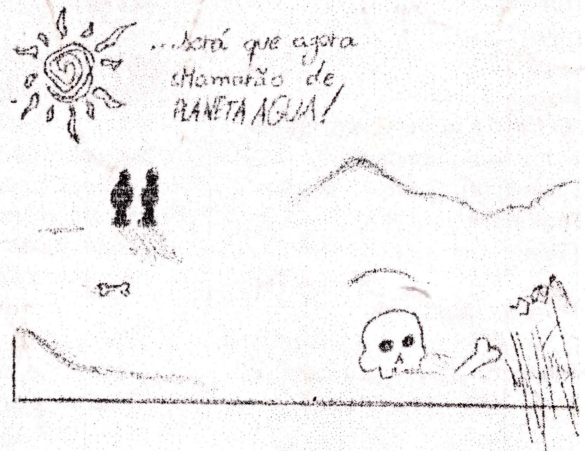 ...será que agora
chamarão de
PLANETA AGUA!